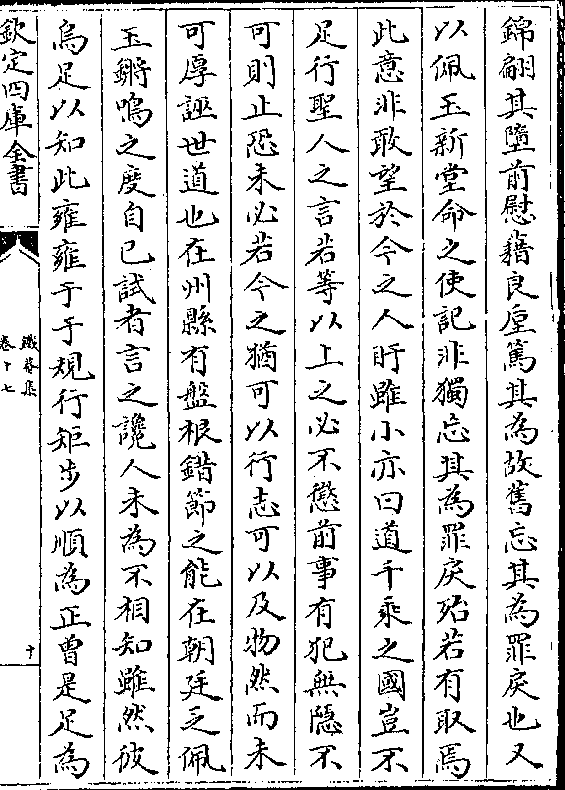 錦翩其墮前慰藉良廑篤其為故舊忘其為罪戾也又
以佩玉新堂命之使記非獨忘其為罪戾殆若有取焉
此意非敢望於今之人盱雖小亦曰道千乘之國豈不
足行聖人之言若等以上之必不懲前事有犯無隱不
可則止恐未必若今之猶可以行志可以及物然而未
可厚誣世道也在州縣有盤根錯節之能在朝廷乏佩
玉鏘鳴之度自已試者言之讒人未為不相知雖然彼
烏足以知此雍雍于于規行矩步以順為正曾是足為
欽定四庫全書
鐵菴集
卷十七
十